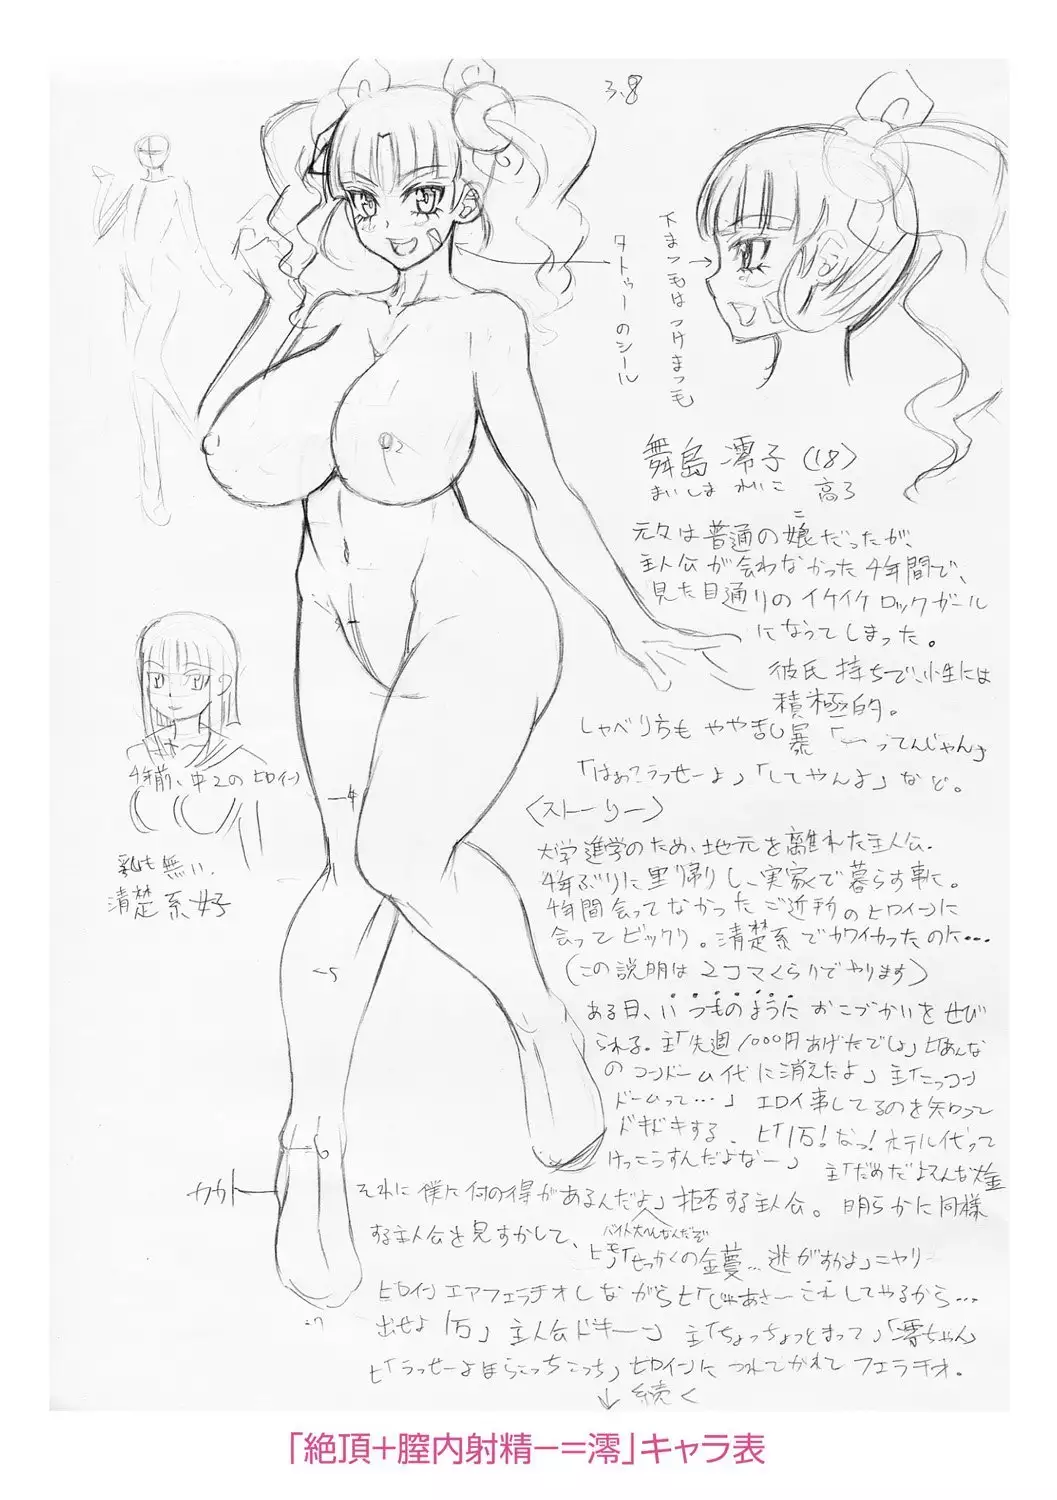 3.8
タトゥーのシール
下まつ毛はつけまつ毛
舞島 澪子(18)
まいしま れいこ 高3
元々は普通の娘だったが、
主人公が会わなかった4年間で、
見た目通りのイケイケロックガール
になってしまった。
彼氏持ちで、性には
積極的。
しゃべり方もやや乱暴「〜ってんじゃん」
「はぁ?うっせーよ」「してやんよ」など。
4年前、中2のヒロイン
<ストーリー>
大学進学のため、地元を離れた主人公。
4年ぶりに里帰りし、実家で暮らす事に。
4年間会ってなかったご近所のヒロインに
会ってビックリ。清楚系でカワイかったのに…
(この説明は2コマくらいでやります)
ある日、いつものようにおこづかいをせび
られる。主「先週1000円あげたでしょ」ヒ「あんな
のコンドーム代に消えたよ」主「こっコン
ドームって…」エロイ事してるのを知って
ドキドキする。ヒ「1万!なっ!ホテル代って
けっこうすんだよなー」
主「だめだよそんな大金
それに僕に何の得があるんだよ」拒否する主人公。明らかに同様
する主人公を見すかして、
バイト大へんなんだぞ
出せよ1万」主人公ドキーン 主「ちょっちょっとまって」「澪ちゃん
ヒ「うっせーよほらこっちこっち」ヒロインにつれてかれてフェラチオ。
↓続く
「絶頂+膣内射精−=澪」キャラ表